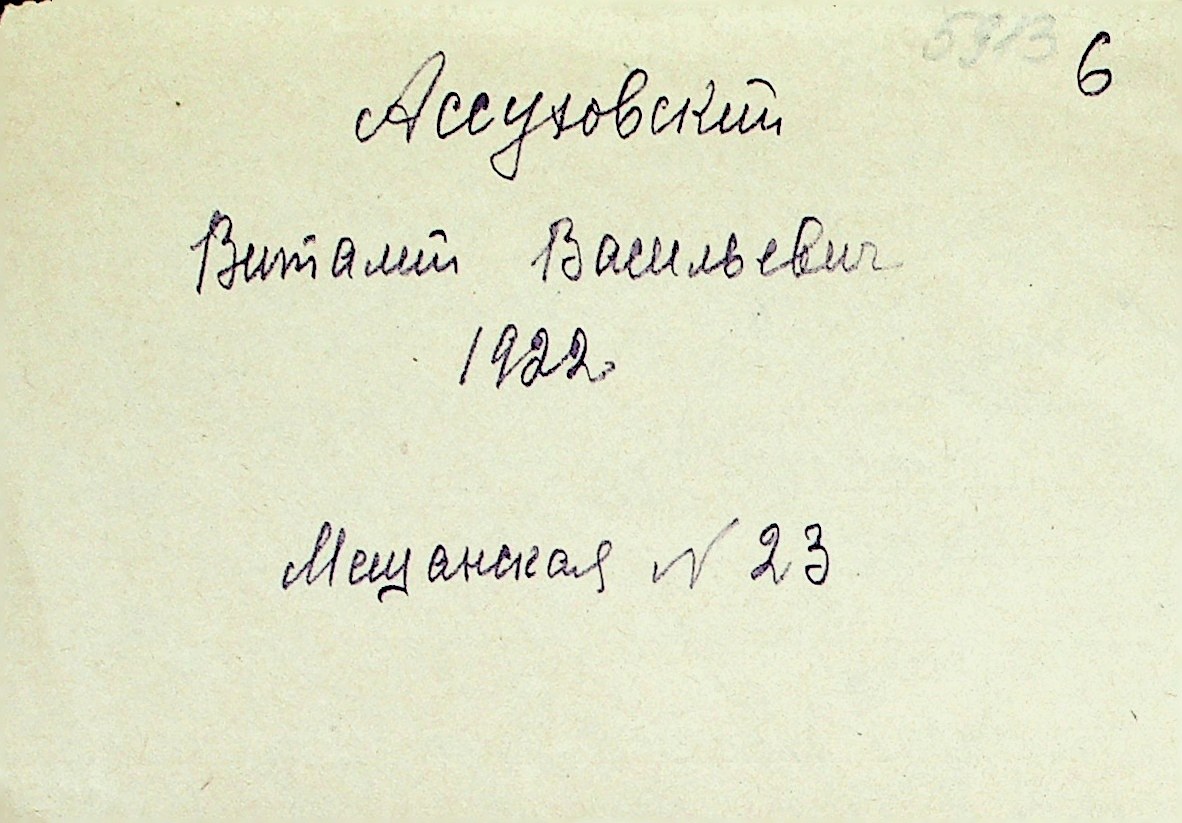 5913 6
Ассуховский
Виталий Васильевич
1922
Мещанская N 23